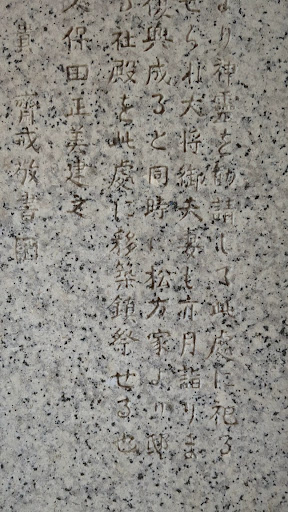 より神霊を勧請して此處に祀る
せられ大将御夫妻も亦月詣りま
復興成ると同時に松方家より邸
の社殿を此處に移築鎮祭せる也
久保田正美建之
齊戒敬書